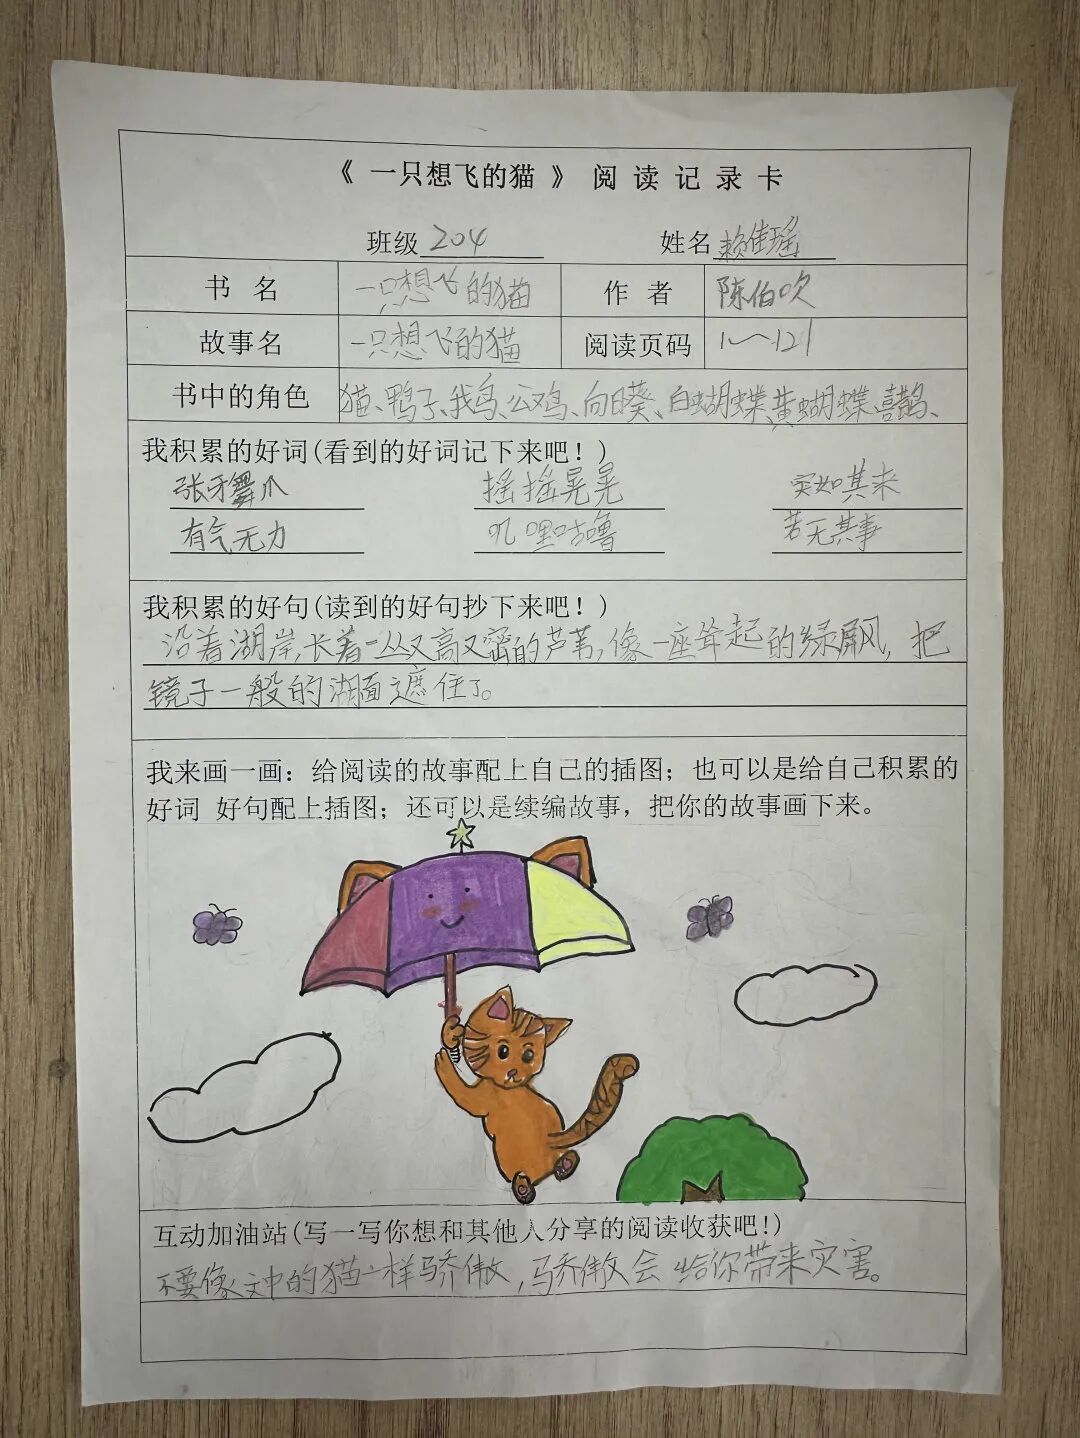 《 一只想飞的猫 》 阅 读 记 录 卡
班级 204 姓名 赖佳瑶
书 名 一只想飞的猫 作 者 陈伯吹
故事名 一只想飞的猫 阅读页码 1～121
书中的角色 猫、鸭子、我鸟、公鸡、向日葵、白蝴蝶、黄蝴蝶、喜鹊、
我积累的好词(看到的好词记下来吧！)
张牙舞爪 摇摇晃晃 突如其来
有气无力 叽哩咕噜 若无其事
我积累的好句(读到的好句抄下来吧！)
沿着湖岸,长着一丛又高又密的芦苇,像一座耸起的绿屏风，把
镜子一般的湖面遮住了。
我来画一画：给阅读的故事配上自己的插图；也可以是给自己积累的
好词 好句配上插图；还可以是续编故事，把你的故事画下来。
互动加油站(写一写你想和其他人分享的阅读收获吧!)
不要像文中的猫一样骄傲,骄傲会给你带来灾害。